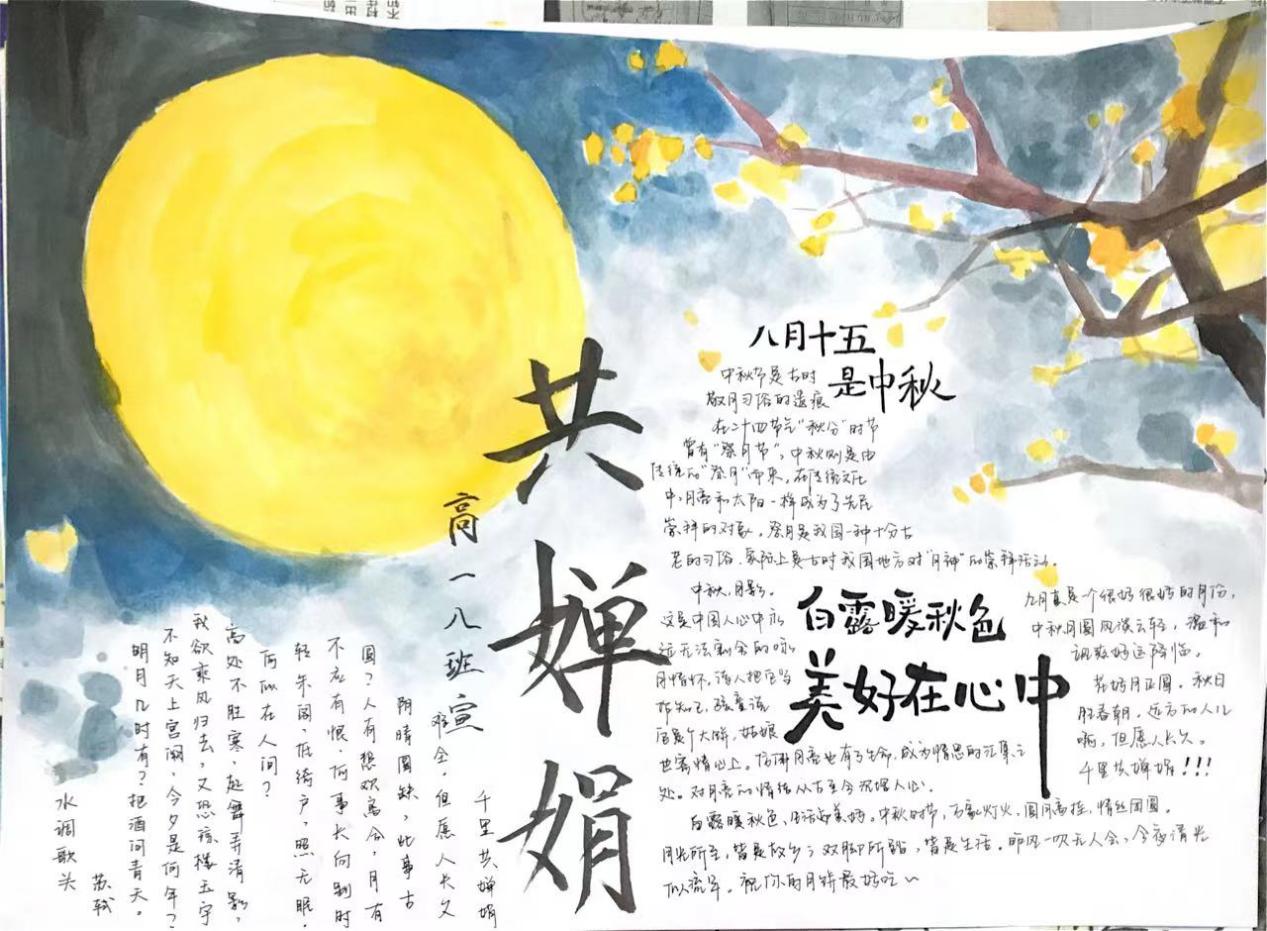 共婵娟
高一八班 宣
水调歌头
苏轼
明月几时有？把酒问青天。
不知天上宫阙，今夕是何年？
我欲乘风归去，又恐琼楼玉宇
高处不胜寒，起舞弄清影，
何似在人间？
转朱阁，低绮户，照无眠。
不应有恨，何事长向别时
圆？人有欢离合，月有
阴晴圆缺，此事古
难全，但愿人长久
千里共婵娟
八月十五
是中秋
中秋节是古时
敬月习俗的遗痕
在二十四节气“秋分”时节
曾有“祭月节”，中秋则是由
传统的“祭月”而来，在传统文化
中，月亮和太阳一样成为了先民
崇拜的对象。祭月是我国一种十分古
老的习俗，实际上是古时我国地方对“月神”的崇拜活动。
白露暖秋色
美好在心中
中秋，月影。
这是中国人心中永
远无法割舍的咏
月情怀，诗人把它当
作知己，孩童说
它是个大饼，姑娘
也寄情心上。仿佛月亮也有了生命，成为情思的汇集之
处。对月亮的情结从古至今沉埋人心。
白露暖秋色，生活多美好。中秋时节，万家灯火，圆月高挂，情丝团圆。
月光所至，皆是故乡；双脚所踏，皆是生活。昨风一吹无人会，今夜清光
似流年。祝你的月饼最好吃～
九月真是一个很好很好的月份，
中秋月圆风淡云轻，温和
讯数好运降临。
花好月正圆。秋日
胜春朝，远方的人儿
啊，但愿人长久。
千里共婵娟！！！